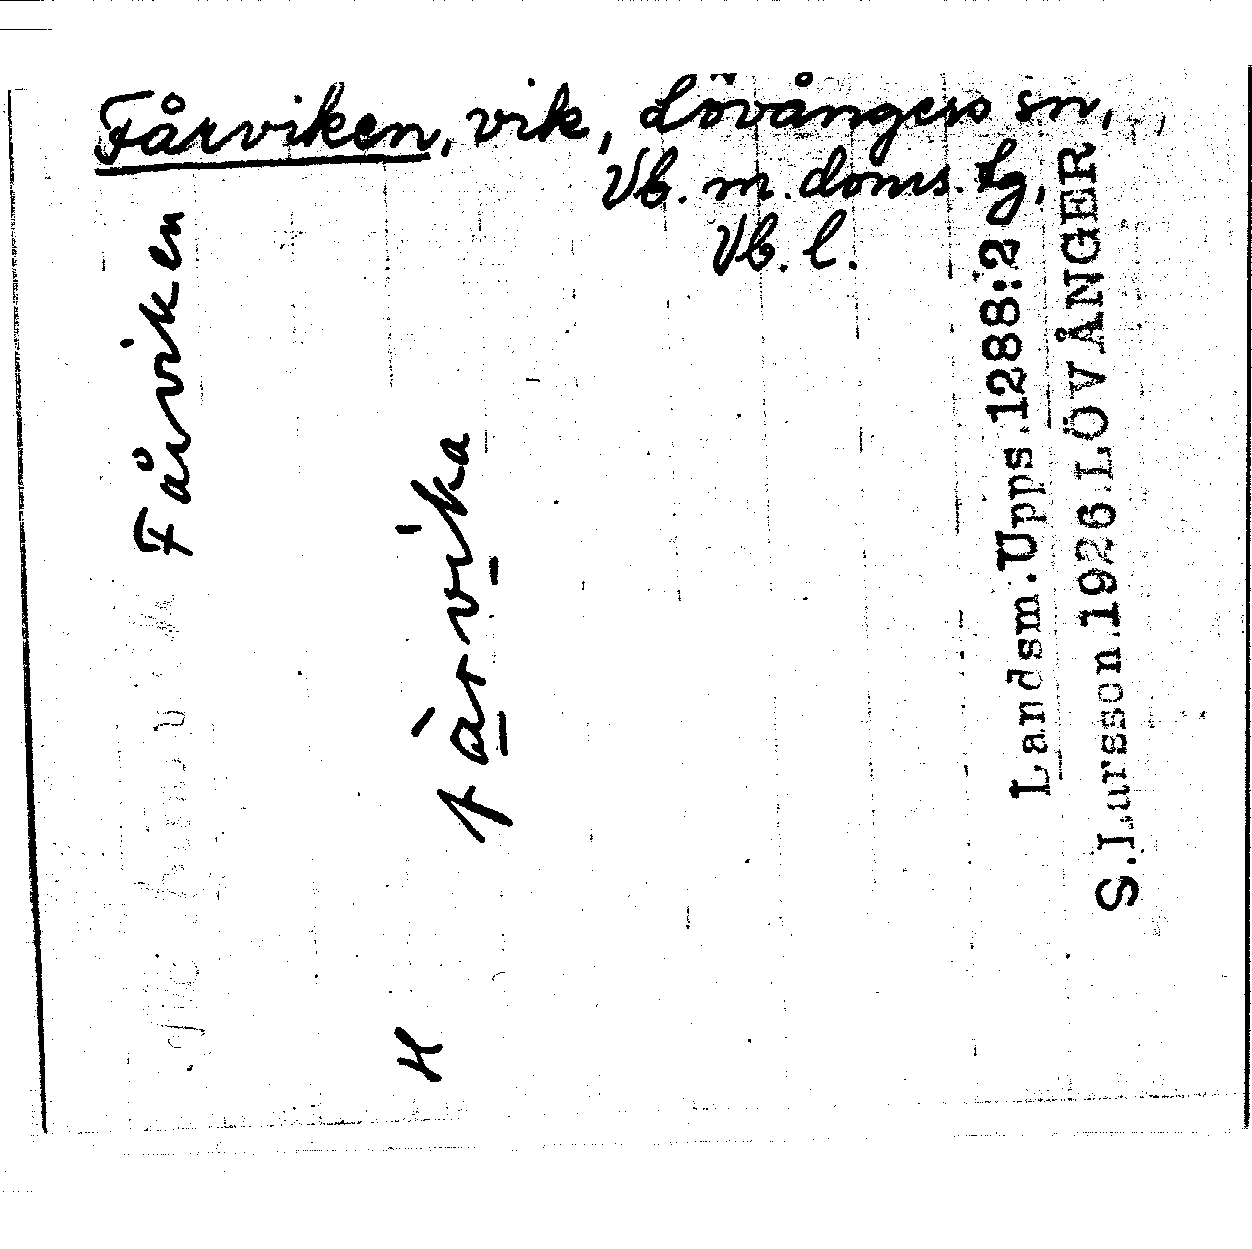 Fårviken, vik, Lövångers sn,
Vb. m. doms. tg,
Vb. l.
Fårviken
fàrvìka
H
Landsm. Upps. 1288:2
S. Larsson. 1926. LÖVÅNGER